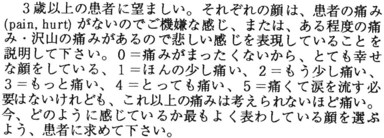 3歳以上の患者に望ましい。それぞれの顔は、患者の痛み
(pain, hurt) がないのでご機嫌な感じ、または、ある程度の痛
み・沢山の痛みがあるので悲しい感じを表現していることを
説明して下さい。0＝痛みがまったくないから、とても幸せ
な顔をしている、1＝ほんの少し痛い、2＝もう少し痛い、
3＝もっと痛い、4＝とっても痛い、5＝痛くて涙を流す必
要はないけれども、これ以上の痛みは考えられないほど痛い。
今、どのように感じているか最もよく表わしている顔を選ぶ
よう、患者に求めて下さい。